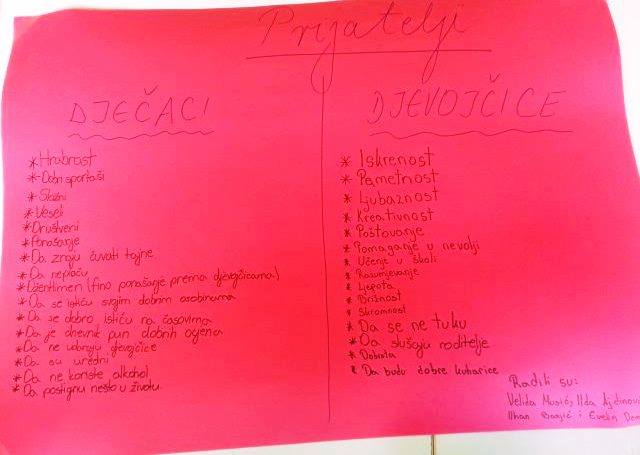 Prijatelji
DJEČACI
* Hrabrost
* Dobri sportaši
* Složni
* Veseli
* Društveni
* Ponašanje
* Da znaju čuvati tajne
* Da ne plaču
* Džentlmen (fino ponašanje prema djevojčicama)
* Da se ističu svojim dobrim osobinama
* Da se dobro ističu na časovima
* Da je dnevnik pun dobrih ocjena
* Da ne udaraju djevojčice
* Da su uredni
* Da ne koriste alkohol
* Da postignu nešto u životu
DJEVOJČICE
* Iskrenost
* Pametnost
* Ljubaznost
* Kreativnost
* Poštovanje
* Pomaganje u nevolji
* Učenje u školi
* Razumjevanje
* Ljepota
* Brižnost
* Skromnost
* Da se ne tuku
* Da slušaju roditelje
* Dobrota
* Da budu dobre kuharice
Radili su:
Velida Musić, Ilda Ajdinović
i